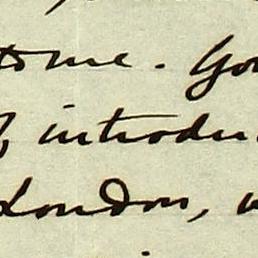 to me. You
of introdu
London, w